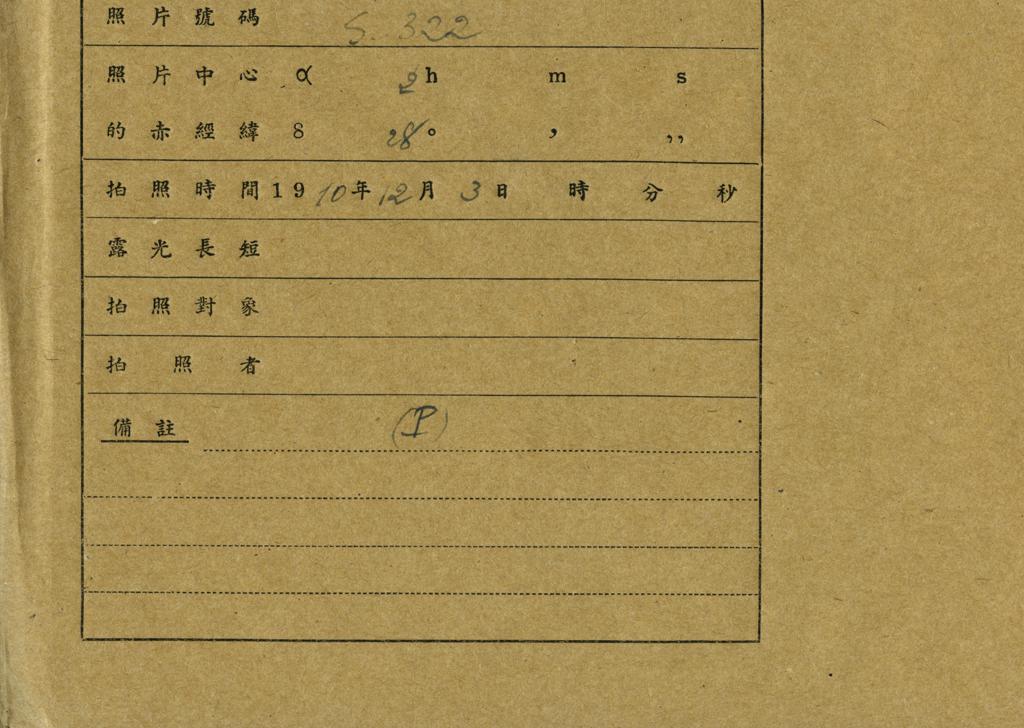 照片號碼 S. 322
照片中心 α 2h m s
的赤經緯 δ 28° ′ ″
拍照時間1910年12月3日 時 分 秒
露光長短
拍照對象
拍照者
備註 (P)